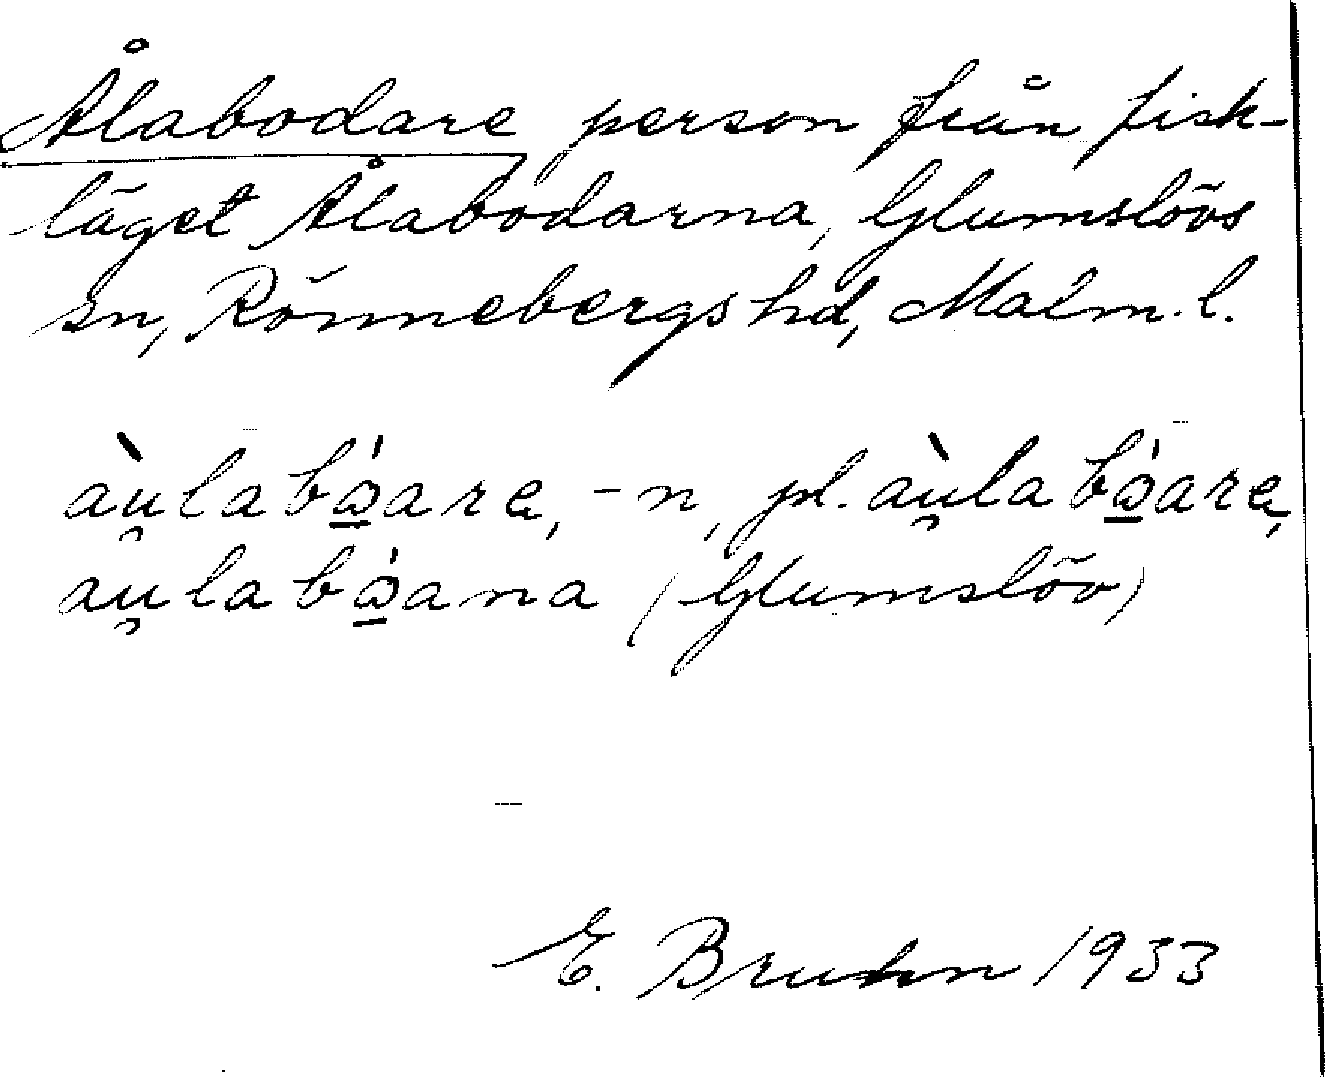 Ålabodare person från fisk-
läget Ålabodarna, Glumslövs
sn, Rönnebergs hd, Malm. l.
àu̯labɷ̲́are, -n, pl. àu̯labɷ̲́are,
au̯labɷ̲́ana (Glumslöv)
E. Bruhn 1933